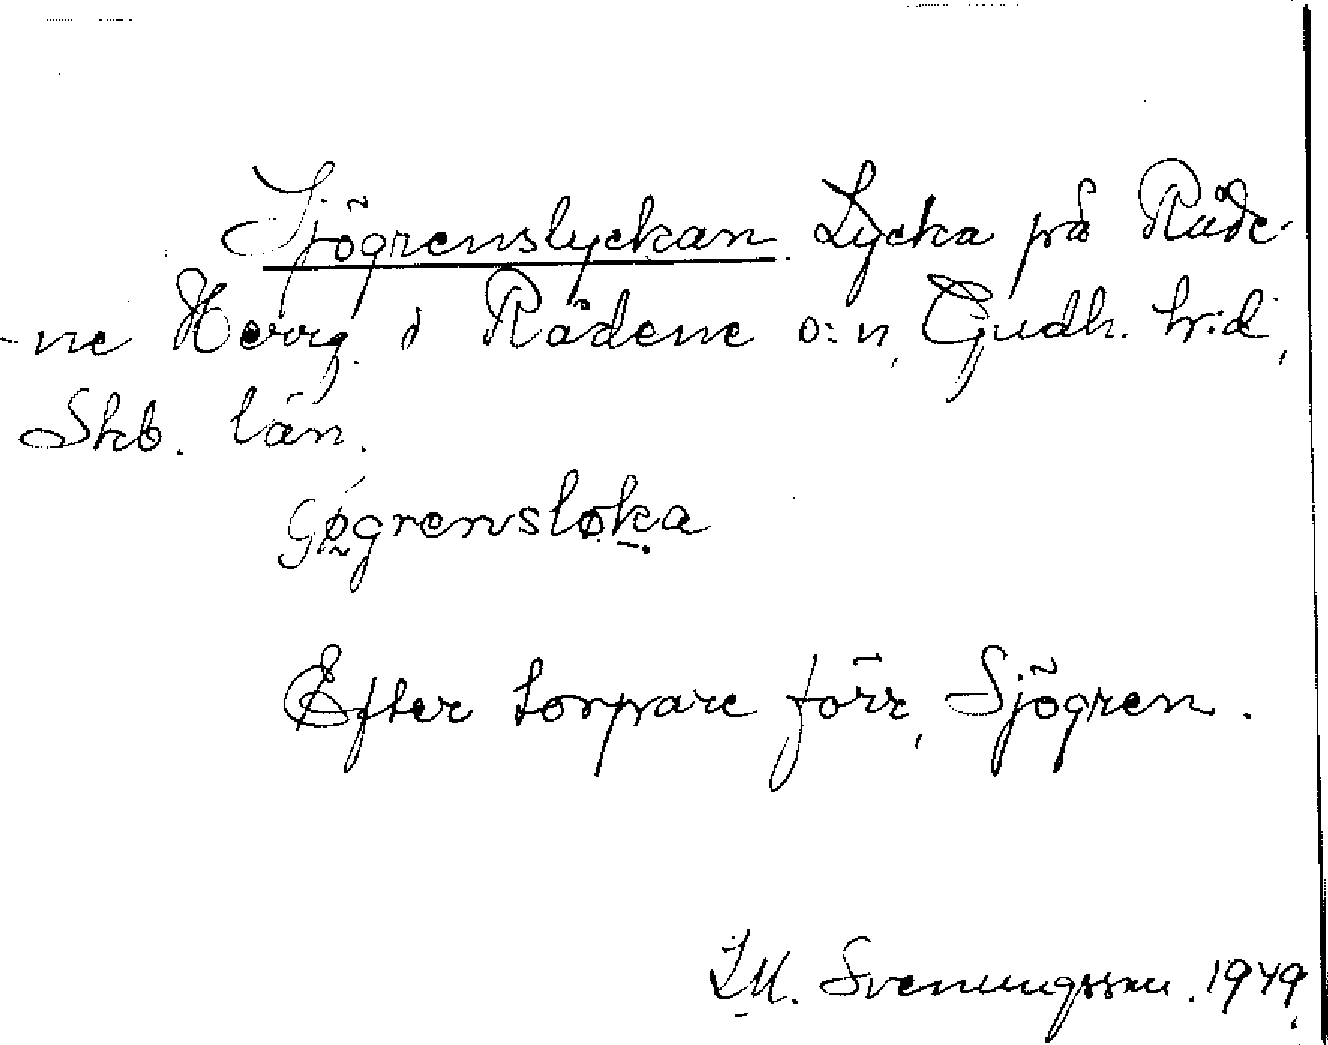 Sjögrenslyckan. Lycka på Råde-
-ne Herrg. i Rådene s:n, Gudh. h:d,
Skb. län.
Efter torpare förr, Sjögren.
Svenungsson. 1949.